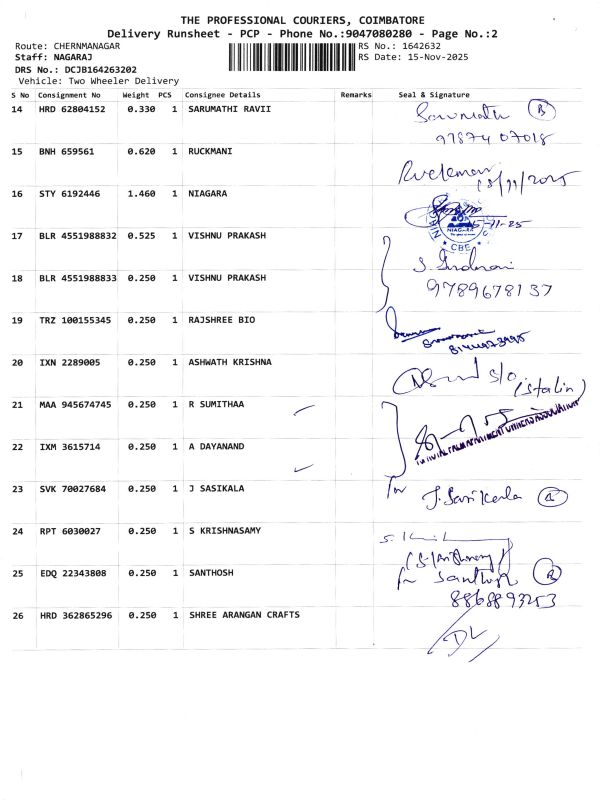 THE PROFESSIONAL COURIERS, COIMBATORE
Delivery Runsheet - PCP - Phone No.:9047080280 - Page No.:2
Route: CHERNMANAGAR RS No.: 1642632
Staff: NAGARAJ RS Date: 15-Nov-2025
DRS No.: DCJB164263202
Vehicle: Two Wheeler Delivery
S No Consignment No Weight PCS Consignee Details Remarks Seal & Signature
14 HRD 62804152 0.330 1 SARUMATHI RAVII
97874 07018
15 BNH 659561 0.620 1 RUCKMANI
16 STY 6192446 1.460 1 NIAGARA
NIAGARA
CBE
17 BLR 4551988832 0.525 1 VISHNU PRAKASH
18 BLR 4551988833 0.250 1 VISHNU PRAKASH
9789678137
19 TRZ 100155345 0.250 1 RAJSHREE BIO
20 IXN 2289005 0.250 1 ASHWATH KRISHNA
S/o (Stalin)
21 MAA 945674745 0.250 1 R SUMITHAA
22 IXM 3615714 0.250 1 A DAYANAND
23 SVK 70027684 0.250 1 J SASIKALA
for J. Sasikala
24 RPT 6030027 0.250 1 S KRISHNASAMY
25 EDQ 22343808 0.250 1 SANTHOSH
for Santhosh
8868893253
26 HRD 362865296 0.250 1 SHREE ARANGAN CRAFTS
DL